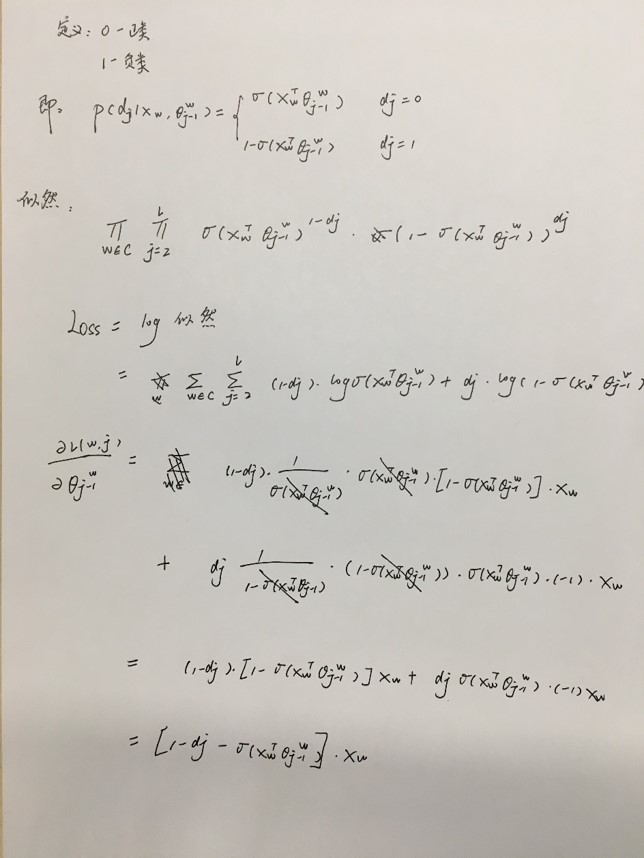 定义: 0 - 正类
1 - 负类
即: p(dj|xw, θ_{j-1}^w) = { σ(xw^T θ_{j-1}^w) dj = 0
1-σ(xw^T θ_{j-1}^w) dj = 1
似然:
∏_{w∈C} ∏_{j=2}^{L} σ(xw^T θ_{j-1}^w)^{1-dj} · (1 - σ(xw^T θ_{j-1}^w))^{dj}
Loss = log 似然
= ∑_{w∈C} ∑_{j=2}^{L} (1-dj) · log σ(xw^T θ_{j-1}^w) + dj · log(1 - σ(xw^T θ_{j-1}^w)
∂L(w,j) / ∂θ_{j-1}^w = (1-dj) · 1/σ(xw^T θ_{j-1}^w) · σ(xw^T θ_{j-1}^w) · [1-σ(xw^T θ_{j-1}^w)] · xw
+ dj 1/(1-σ(xw^T θ_{j-1})) · (1-σ(xw^T θ_{j-1}^w)) · σ(xw^T θ_{j-1}^w) · (-1) · xw
= (1-dj) · [1-σ(xw^T θ_{j-1}^w)] xw + dj σ(xw^T θ_{j-1}^w) · (-1) xw
= [1-dj - σ(xw^T θ_{j-1}^w)] · xw